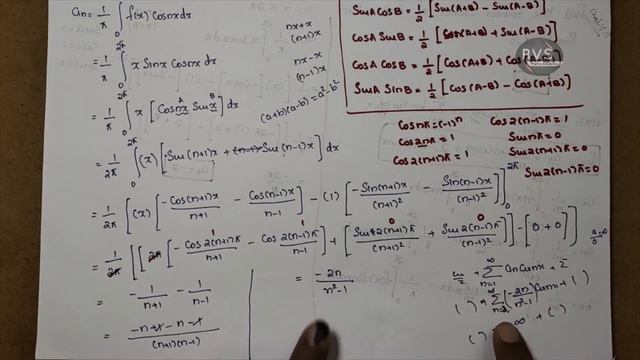 an = 1/π ∫₀^2π f(x) Cosnx dx
= 1/π ∫₀^2π x Sinx Cosnx dx
= 1/π ∫₀^2π x [Cosnx Sinx] dx
A B
(a+b)(a-b) = a²-b²
nx+x
(n+1)x
nx-x
(n-1)x
= 1/2π ∫₀^2π (x) [Sin(n+1)x + Sin(n-1)x] dx
= 1/2π [(x) [-Cos(n+1)x/n+1 - Cos(n-1)x/n-1] - (1) [-Sin(n+1)x/(n+1)² - Sin(n-1)x/(n-1)²]]₀^2π
= 1/2π [[2π [-Cos2(n+1)π/n+1 - Cos2(n-1)π/n-1] + [Sin2(n+1)π/(n+1)² + Sin2(n-1)π/(n-1)²]] - [0+0]]
1 1 0 0
= -1/n+1 - 1/n-1
= -n+1-n-1/(n+1)(n-1)
= -2n/n²-1
SinA CosB = 1/2 [Sin(A+B) - Sin(A-B)]
CosA SinB = 1/2 [Sin(A+B) + Sin(A-B)]
CosA CosB = 1/2 [Cos(A+B) + Cos(A-B)]
SinA SinB = 1/2 [Cos(A-B) - Cos(A+B)]
RVS
Cosnπ = (-1)ⁿ
Cos2nπ = 1
Cos2(n+1)π = 1
Cos2(n-1)π = 1
Sinnπ = 0
Sin2(n+1)π = 0
Sin2(n-1)π = 0
a₀/2 + Σ n=1 ∞ an Cosnx + Σ
( ) + Σ n=2 ∞ (-2n/n²-1) Cosnx + ( )
( ) ∞ + ( )